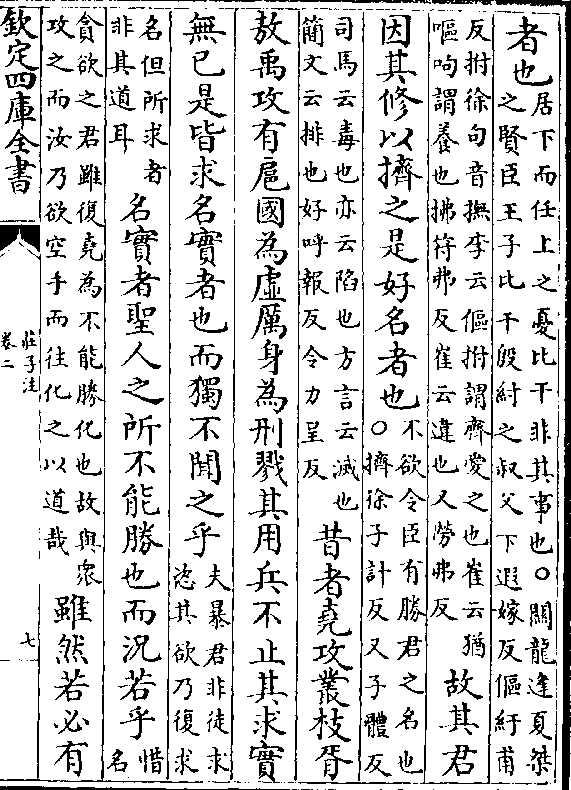 者也居下而任上之憂比干非其事也○關龍逢夏桀
之賢臣王子比干殷紂之叔父下遐嫁反傴紆甫
反拊徐句音撫李云傴拊謂憐愛之也崔云猶
嘔呴謂養也拂符弗反崔云違也又勞弗反故其君
因其修以擠之是好名者也不欲令臣有勝君之名也
○擠徐子計反又子禮反
司馬云毒也亦云陷也方言云滅也
簡文云排也好呼報反令力呈反昔者堯攻叢枝胥
敖禹攻有扈國為虛厲身為刑戮其用兵不止其求實
無已是皆求名實者也而獨不聞之乎夫暴君非徒求
恣其欲乃復求
名但所求者
非其道耳名實者聖人之所不能勝也而況若乎惜名
貪欲之君雖復堯為不能勝化也故與衆
攻之而汝乃欲空手而往化之以道哉雖然若必有
欽定四庫全書
莊子注
卷二
七